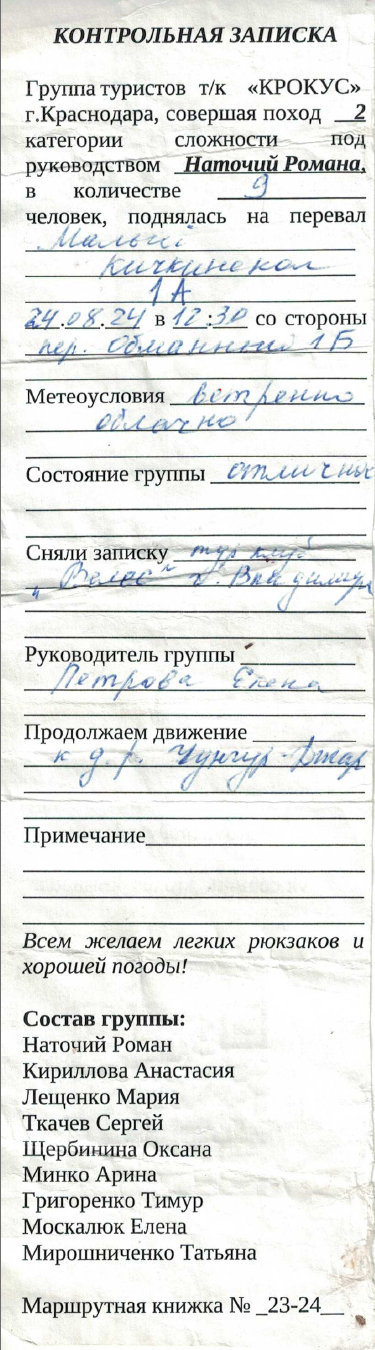 КОНТРОЛЬНАЯ ЗАПИСКА
Группа туристов т/к «КРОКУС»
г.Краснодара, совершая поход 2
категории сложности под
руководством Наточий Романа,
в количестве 9
человек, поднялась на перевал
Малый
Кичкинекол
1А
24.08.24 в 12:30 со стороны
пер. Обманный 1Б
Метеоусловия ветренно
облачно
Состояние группы отличное
Сняли записку тур клуб
"Велес" г. Владимир
Руководитель группы
Петрова Елена
Продолжаем движение
к д.р. Чунгур-Джар
Примечание
Всем желаем легких рюкзаков и
хорошей погоды!
Состав группы:
Наточий Роман
Кириллова Анастасия
Лещенко Мария
Ткачев Сергей
Щербинина Оксана
Минко Арина
Григоренко Тимур
Москалюк Елена
Мирошниченко Татьяна
Маршрутная книжка № _23-24__